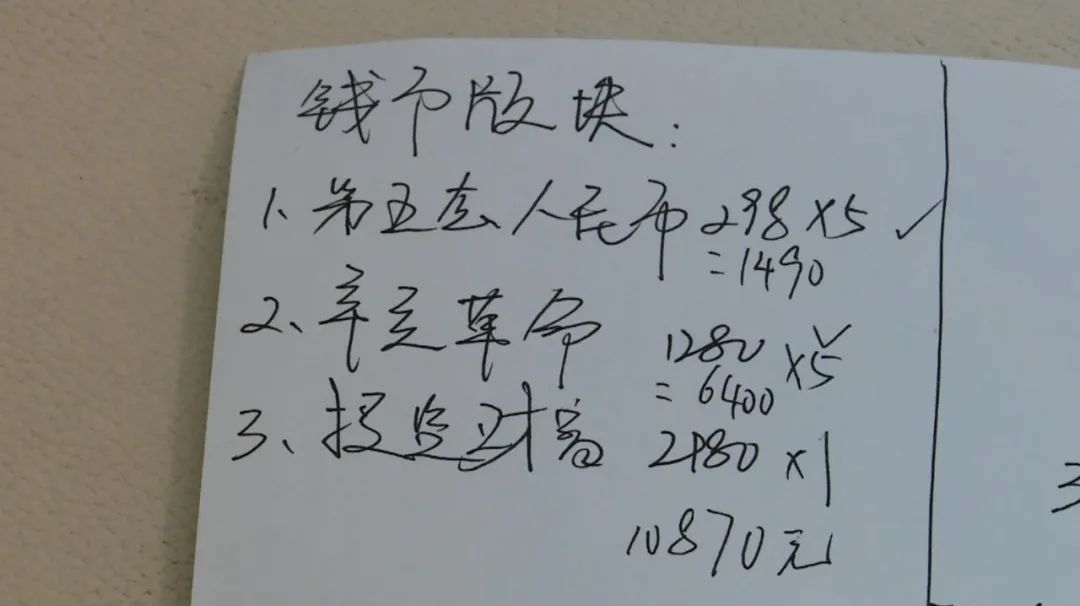 钱币版块:
1、第五套人民币 298×5 ✓
=1490
2、辛亥革命 1280×5 ✓
=6400
3、2980×1
10870元
3